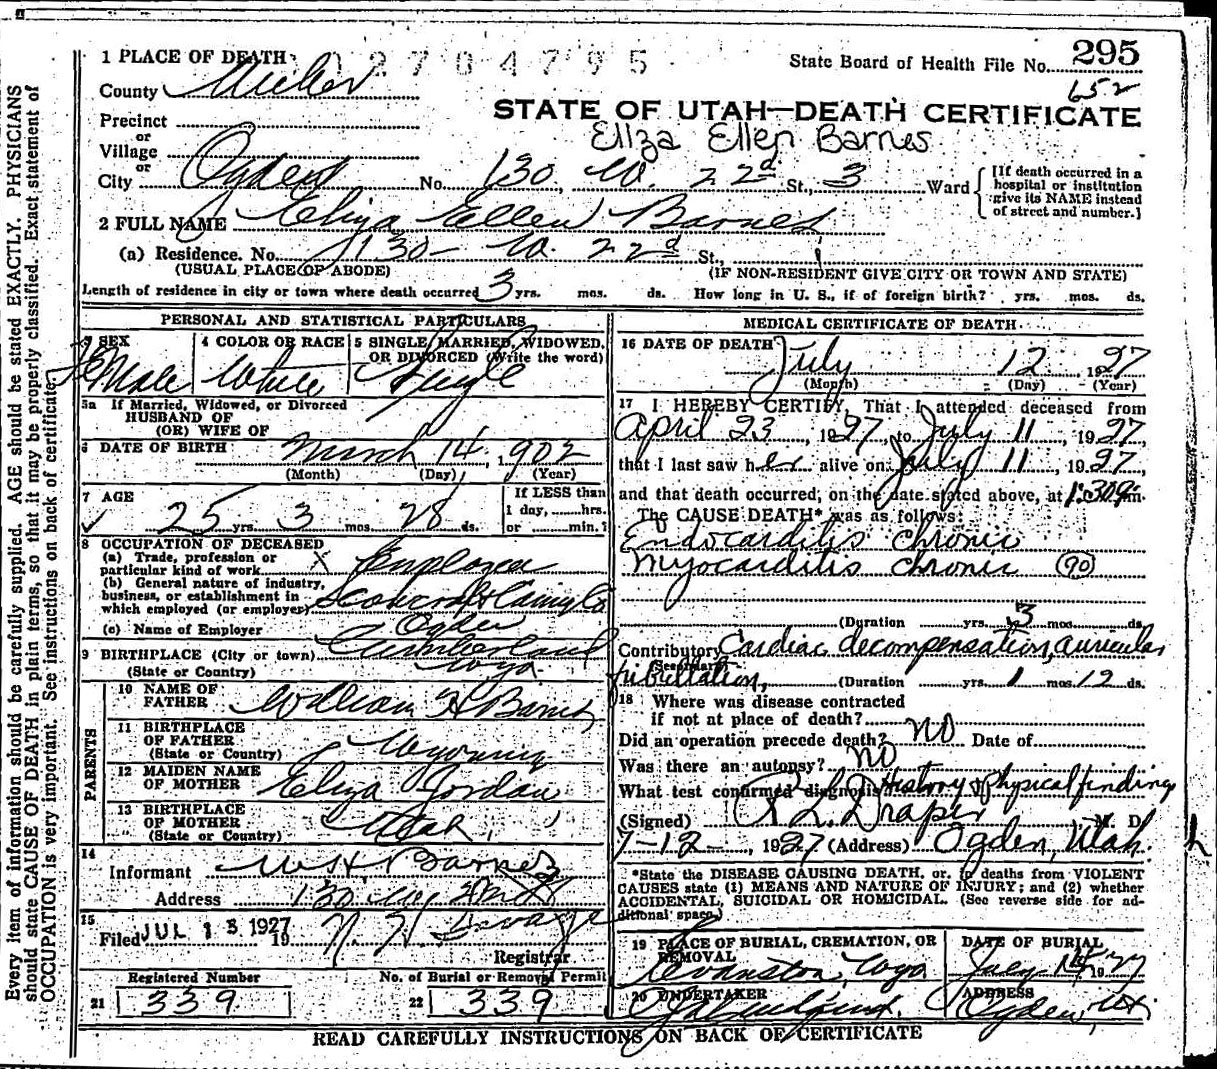 295
1 PLACE OF DEATH 2704795 State Board of Health File No. 652
County Weber
STATE OF UTAH—DEATH CERTIFICATE
Precinct
or
Eliza Ellen Barnes
Village
or
City Ogden No. 130 W. 22d St., 3 Ward
[If death occurred in a
hospital or institution
give its NAME instead
of street and number.]
2 FULL NAME Eliza Ellen Barnes
(a) Residence. No. 130 - W. 22d St.,
(USUAL PLACE OF ABODE) (IF NON-RESIDENT GIVE CITY OR TOWN AND STATE)
Length of residence in city or town where death occurred 3 yrs. mos. ds. How long in U. S., if of foreign birth? yrs. mos. ds.
PERSONAL AND STATISTICAL PARTICULARS
3 SEX
FeMale
4 COLOR OR RACE
White
5 SINGLE, MARRIED, WIDOWED,
OR DIVORCED (Write the word)
Single
5a If Married, Widowed, or Divorced
HUSBAND OF
(OR) WIFE OF
6 DATE OF BIRTH March 14, 1902
(Month) (Day) (Year)
7 AGE
25 yrs. 3 mos. 28 ds.
If LESS than
1 day, hrs.
or min.?
8 OCCUPATION OF DECEASED
(a) Trade, profession or
particular kind of work X Employee
(b) General nature of industry,
business, or establishment in
which employed (or employer)
(c) Name of Employer Ogden
9 BIRTHPLACE (City or town) Cumberland
(State or Country) Wyo
PARENTS
10 NAME OF
FATHER William H Barnes
11 BIRTHPLACE
OF FATHER
(State or Country) Wyoming
12 MAIDEN NAME
OF MOTHER Eliza Jordan
13 BIRTHPLACE
OF MOTHER
(State or Country) Utah
14
Informant W.H. Barnes
Address 130 W. 22nd St
15
Filed JUL 13 1927 19
Registrar
Registered Number No. of Burial or Removal Permit
21 339 22 339
MEDICAL CERTIFICATE OF DEATH
16 DATE OF DEATH July 12 1927
(Month) (Day) (Year)
17 I HEREBY CERTIFY, That I attended deceased from
April 23, 1927, to July 11, 1927
that I last saw her alive on July 11, 1927
and that death occurred, on the date stated above, at 1:30 am.
The CAUSE DEATH* was as follows:
Endocarditis chronic
Myocarditis chronic 90
(Duration yrs. 3 mos. ds.
Contributory Cardiac decompensation, auricular
(Secondary)
fibrillation, (Duration yrs. 1 mos. 12 ds.
18 Where was disease contracted
if not at place of death?
Did an operation precede death? NO Date of
Was there an autopsy? NO
What test confirmed diagnosis History & Physical finding
(Signed) R L Draper M. D.
7-12-, 1927 (Address) Ogden, Utah.
*State the DISEASE CAUSING DEATH, or, in deaths from VIOLENT
CAUSES state (1) MEANS AND NATURE OF INJURY; and (2) whether
ACCIDENTAL, SUICIDAL OR HOMICIDAL. (See reverse side for ad-
ditional space.)
19 PLACE OF BURIAL, CREMATION, OR
REMOVAL
Evanston, Wyo
DATE OF BURIAL
July 14 1927
20 UNDERTAKER
ADDRESS
Ogden, Ut
READ CAREFULLY INSTRUCTIONS ON BACK OF CERTIFICATE
Every item of information should be carefully supplied. AGE should be stated EXACTLY. PHYSICIANS
should state CAUSE OF DEATH in plain terms, so that it may be properly classified. Exact statement of
OCCUPATION is very important. See instructions on back of certificate.